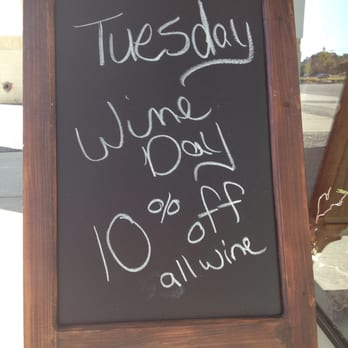 Tuesday
Wine
Day
10% off
all wine